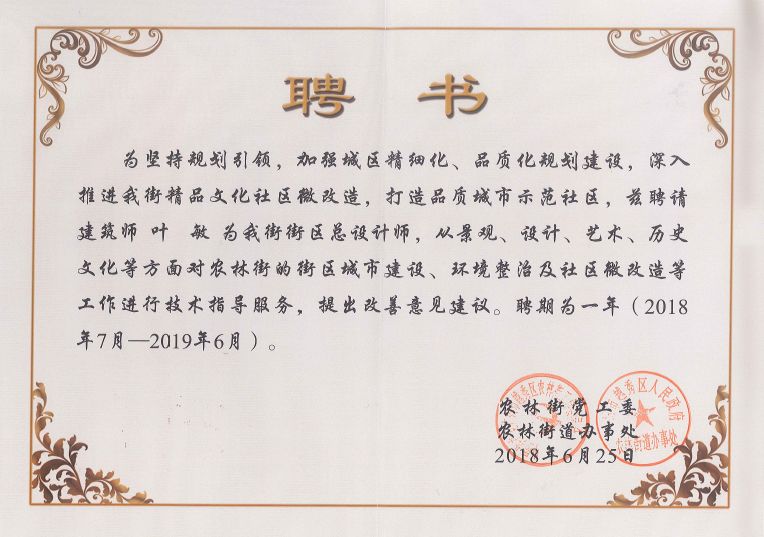 聘 书
为坚持规划引领，加强城区精细化、品质化规划建设，深入
推进我街精品文化社区微改造，打造品质城市示范社区，兹聘请
建筑师 叶 敏 为我街街区总设计师，从景观、设计、艺术、历史
文化等方面对农林街的街区城市建设、环境整治及社区微改造等
工作进行技术指导服务，提出改善意见建议。聘期为一年（2018
年7月—2019年6月）。
农林街党工委
农林街道办事处
2018年6月25日
越秀区人民政府